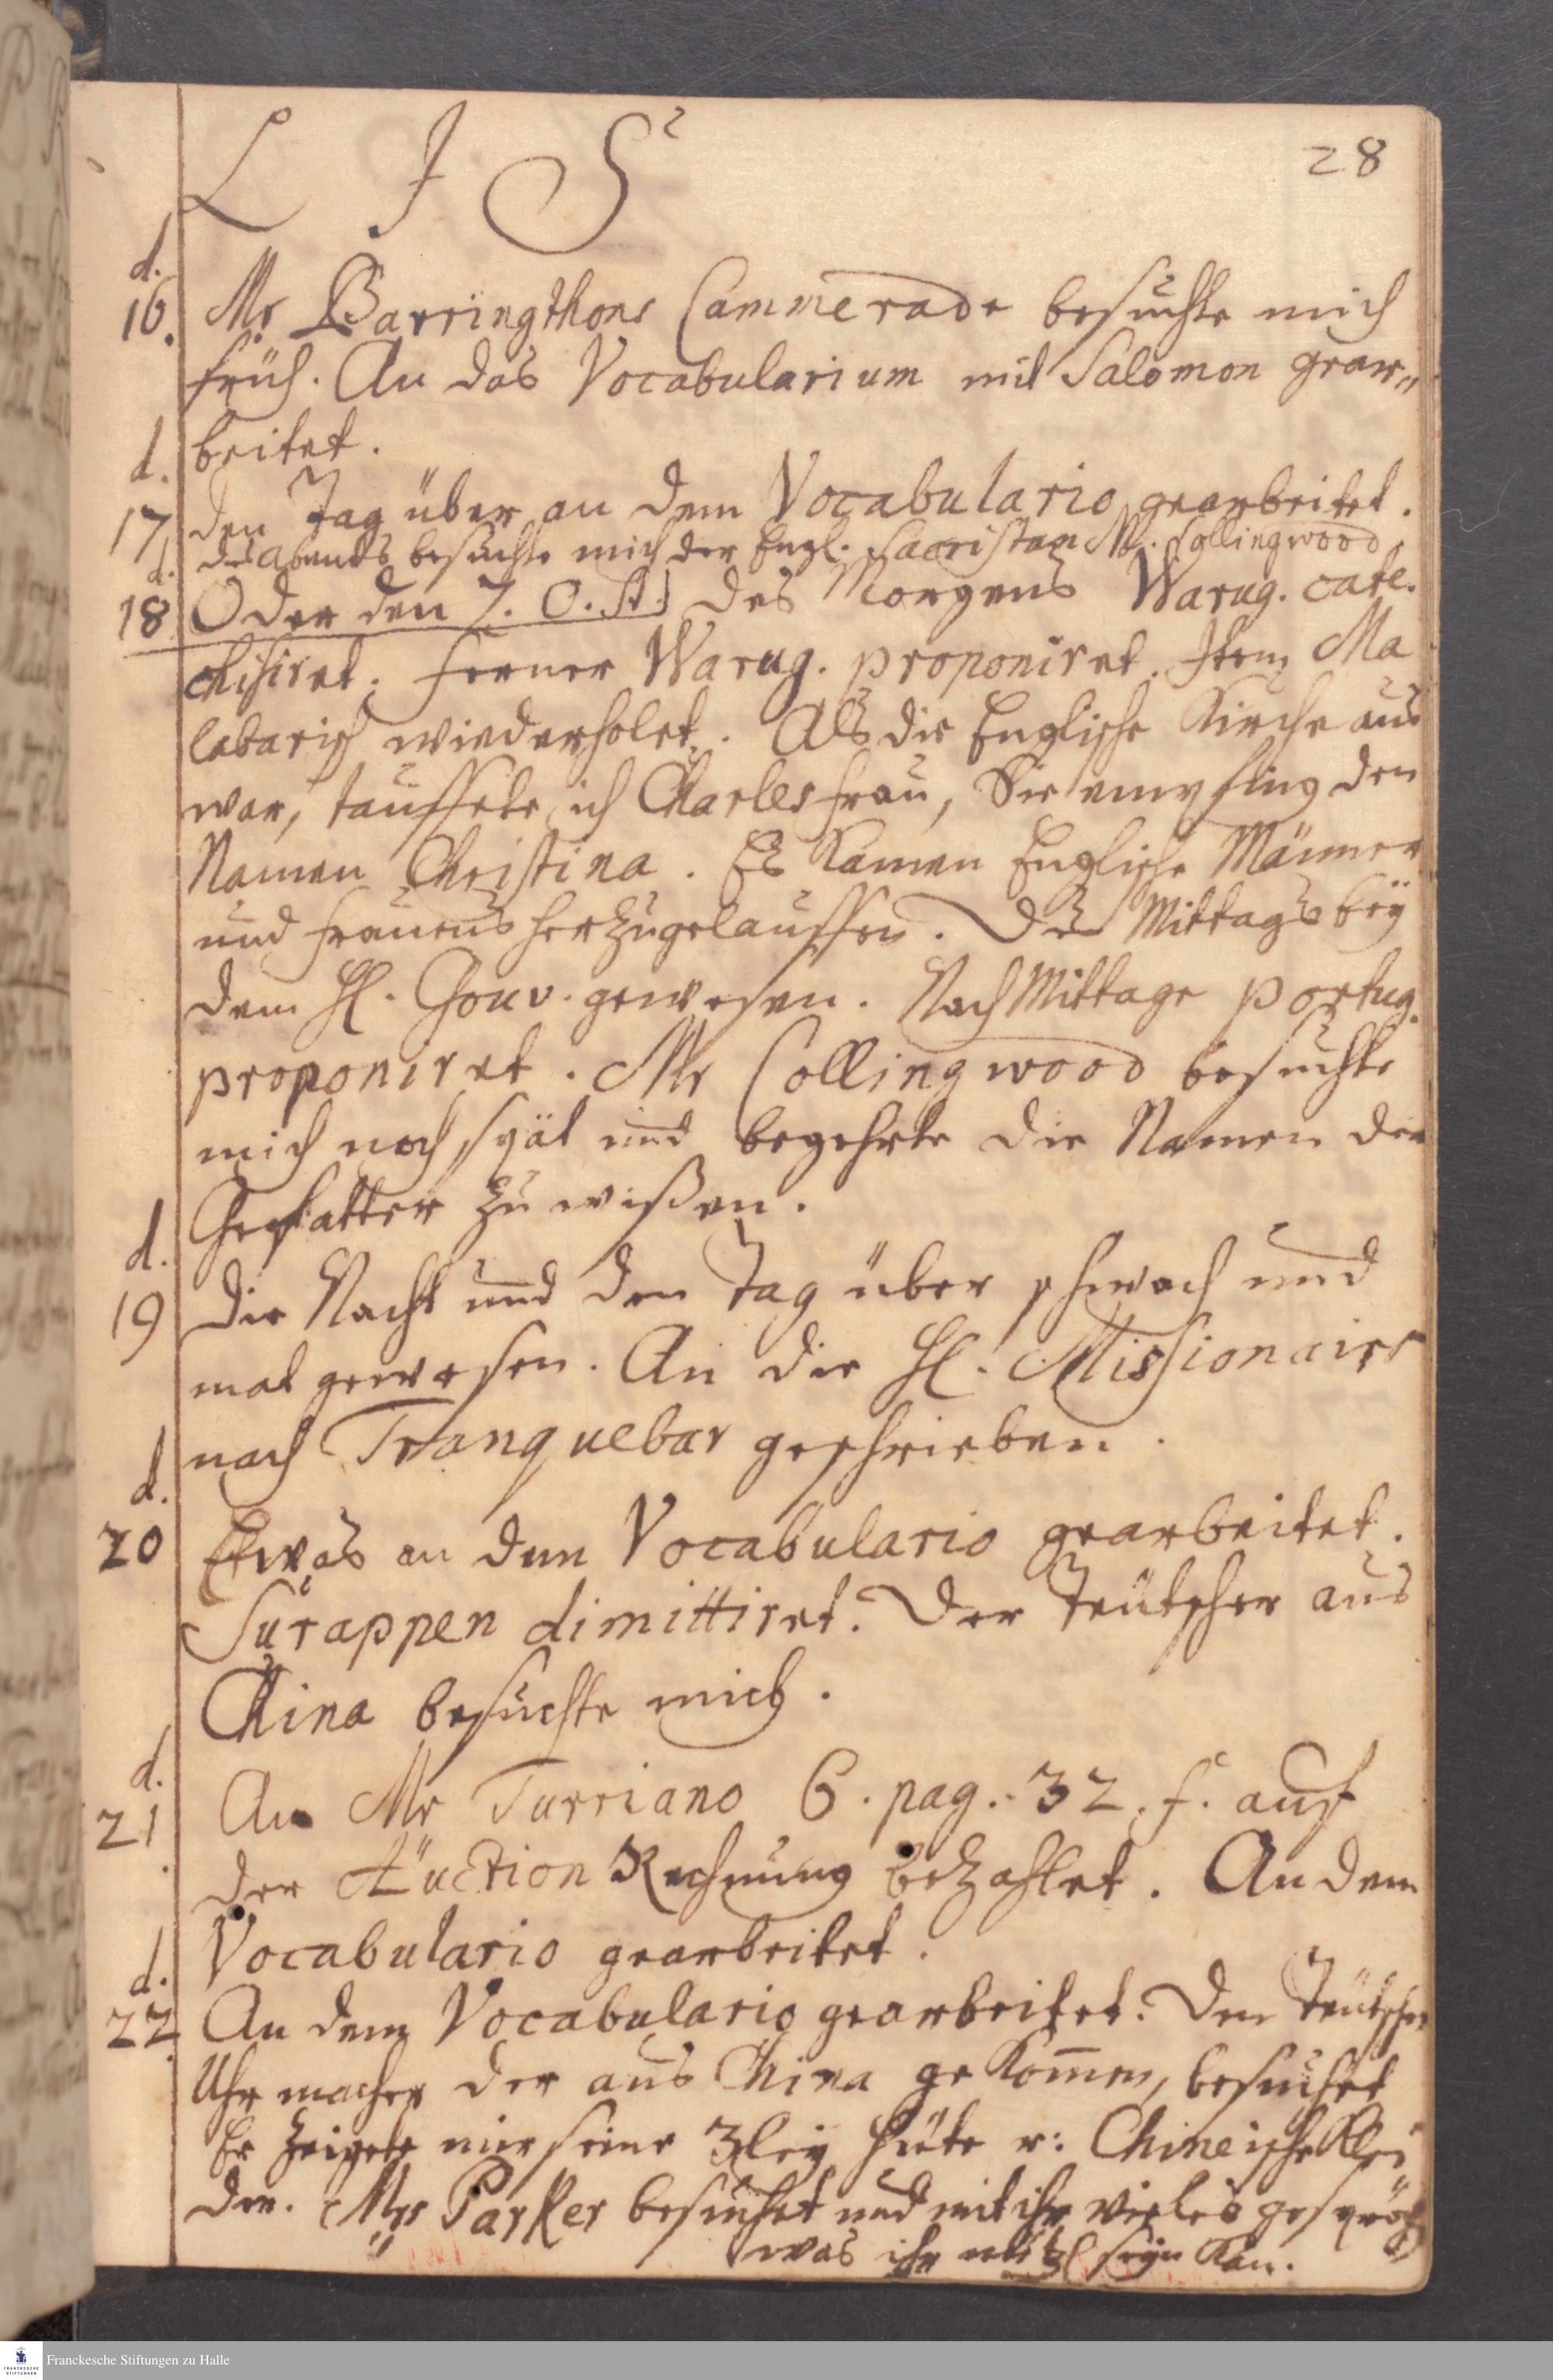 L J S
28
d.
16. Mr Barringthons Cammerade besuchte mich
früh. An das Vocabularium mit Salomon gear„
beitet.
d.
17 den Tag über an dem Vocabulario gearbeitet.
des abends besuchte mich der Engl. Sacristan Mr. Collingwood
d.
18 Oder den 7. O. St.) des Morgens Warug. cate.
chisiret. ferner Warug. proponiret. Item Ma
labarisch wiederholet. Als die Englische Kirche aus
war, tauffete ich Charles frau, Sie empfing den
Namen Christina. Es kamen Englische Männer
und frauens herzugelauffen. Des Mittags bey
dem H. Gouv. gewesen. Nach Mittage portug.
proponiret. Mr Collingwood besuchte
mich noch spät und begehrte die Namen der
Gefatter zu wißen.
d.
19 die Nacht und den Tag über schwach und
mat gewesen. An die H. Missionairs
nach Tranquebar geschrieben.
d.
20 Etwas an dem Vocabulario gearbeitet.
Surappen dimittiret. Der Teütscher aus
China besuchte mich.
d.
21 An Mr Turriano 6. pag. 32. f. auf
der Auction Rechnung bezahlet. An dem
Vocabulario gearbeitet.
d.
22 An dem Vocabulario gearbeitet. Den Teütschen
Uhr macher der aus China gekom̅en, besuchet
Er zeigete mir seine 3ley Hüte u: Chineische Klei
der. Mrs Parker besuchet und mit ihr vieles gespröch
was ihr nützl seyn kan.
Franckesche Stiftungen zu Halle